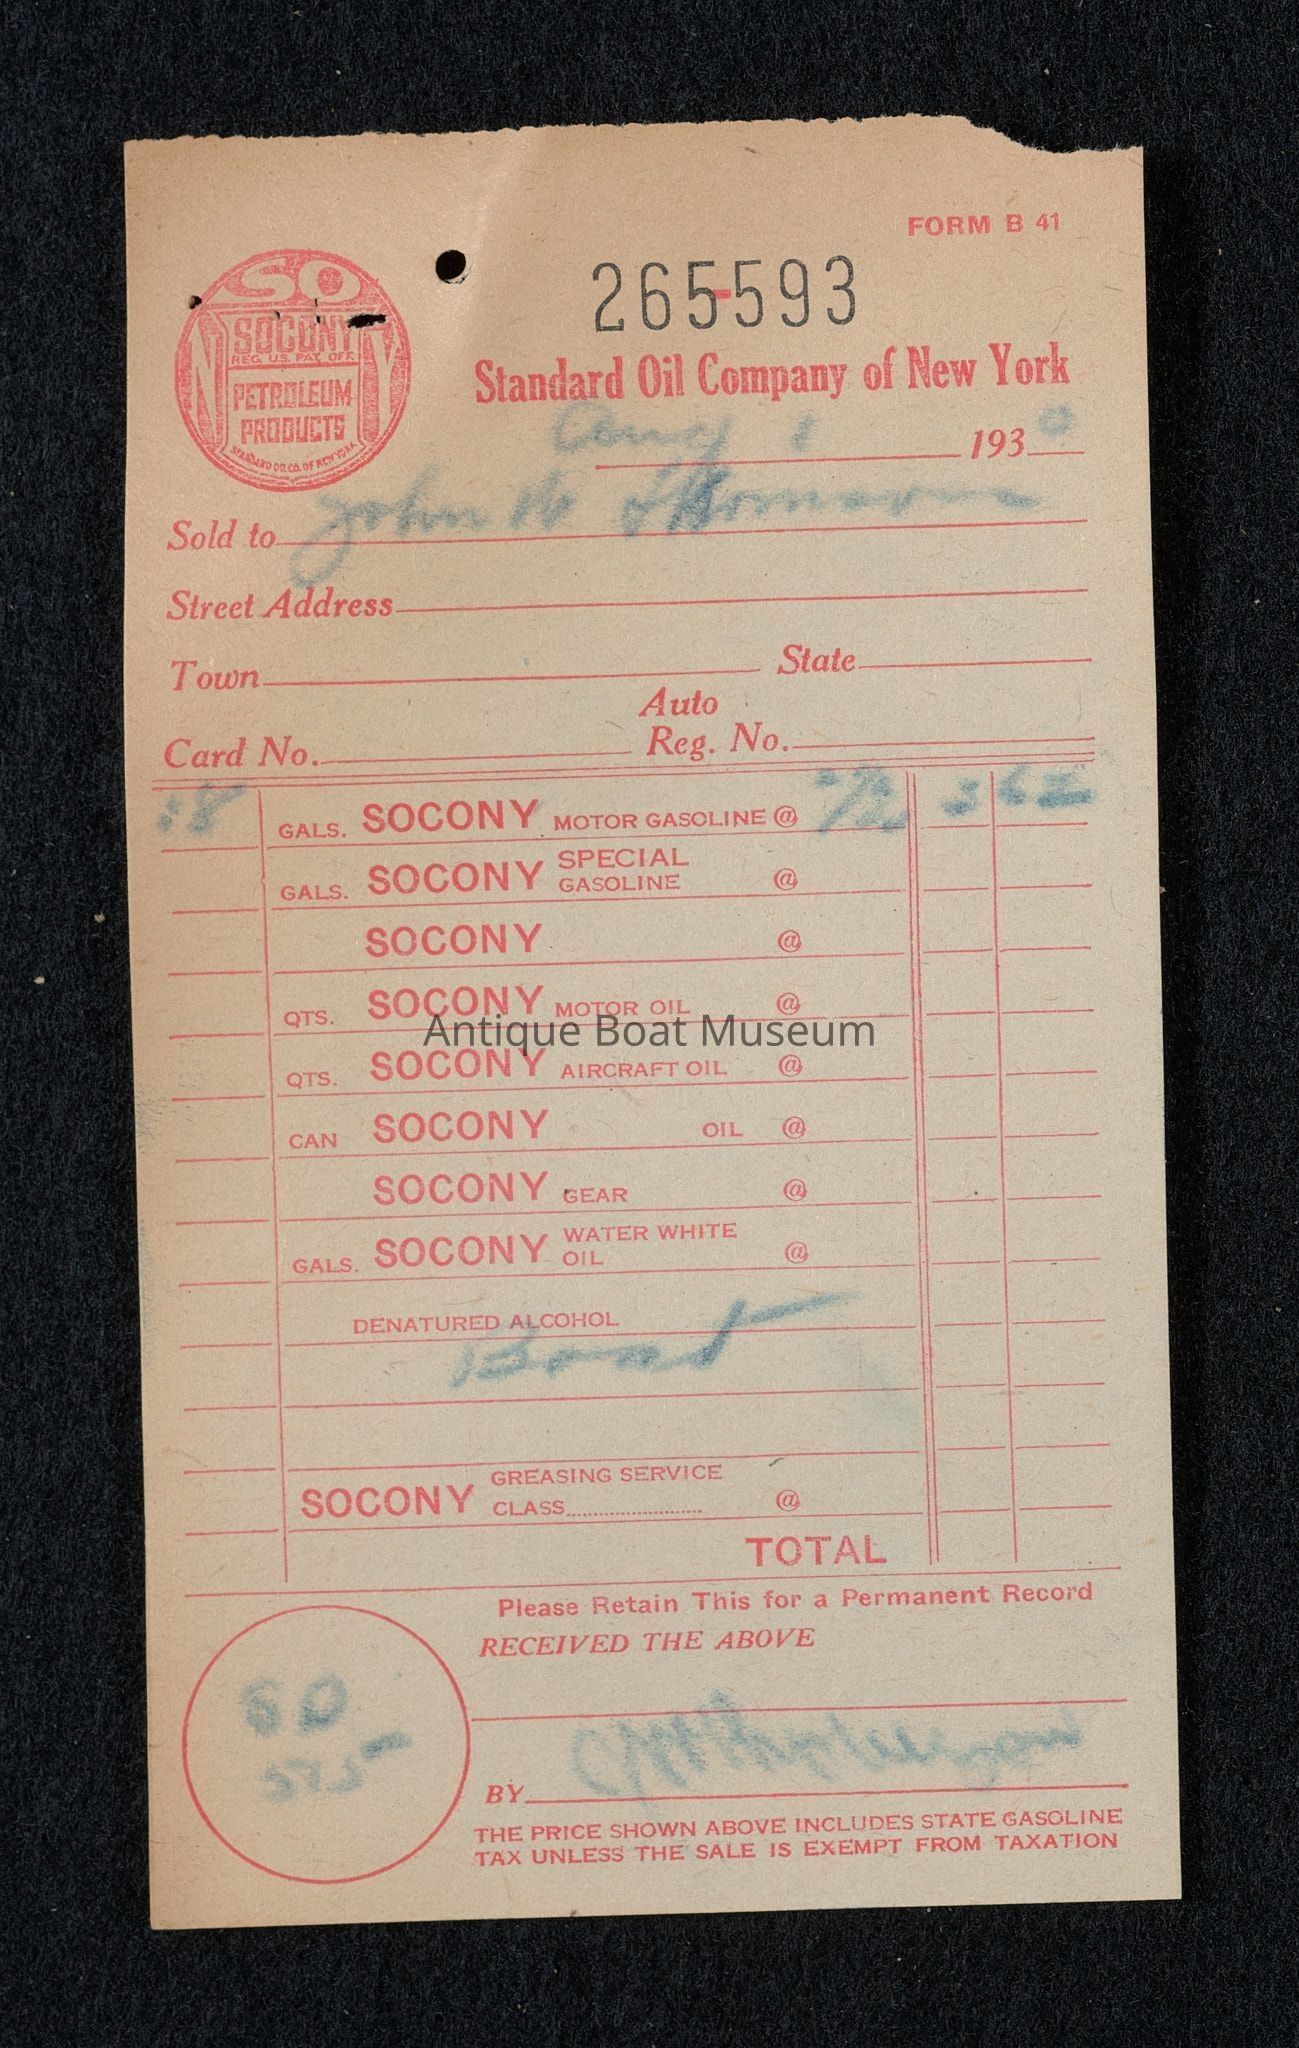 FORM B 41
265593
SO
SOCONY
REG. U.S. PAT. OFF.
N Y
PETROLEUM
PRODUCTS
STANDARD OIL CO. OF NEW YORK
Standard Oil Company of New York
Aug 1 1930
Sold to John H
Street Address
Town State
Auto
Card No. Reg. No.
18 GALS. SOCONY MOTOR GASOLINE @
GALS. SOCONY SPECIAL GASOLINE @
SOCONY @
QTS. SOCONY MOTOR OIL @
Antique Boat Museum
QTS. SOCONY AIRCRAFT OIL @
CAN SOCONY OIL @
SOCONY GEAR @
GALS. SOCONY WATER WHITE OIL @
DENATURED ALCOHOL
Boat
SOCONY GREASING SERVICE
CLASS @
TOTAL
Please Retain This for a Permanent Record
RECEIVED THE ABOVE
BY
THE PRICE SHOWN ABOVE INCLUDES STATE GASOLINE
TAX UNLESS THE SALE IS EXEMPT FROM TAXATION